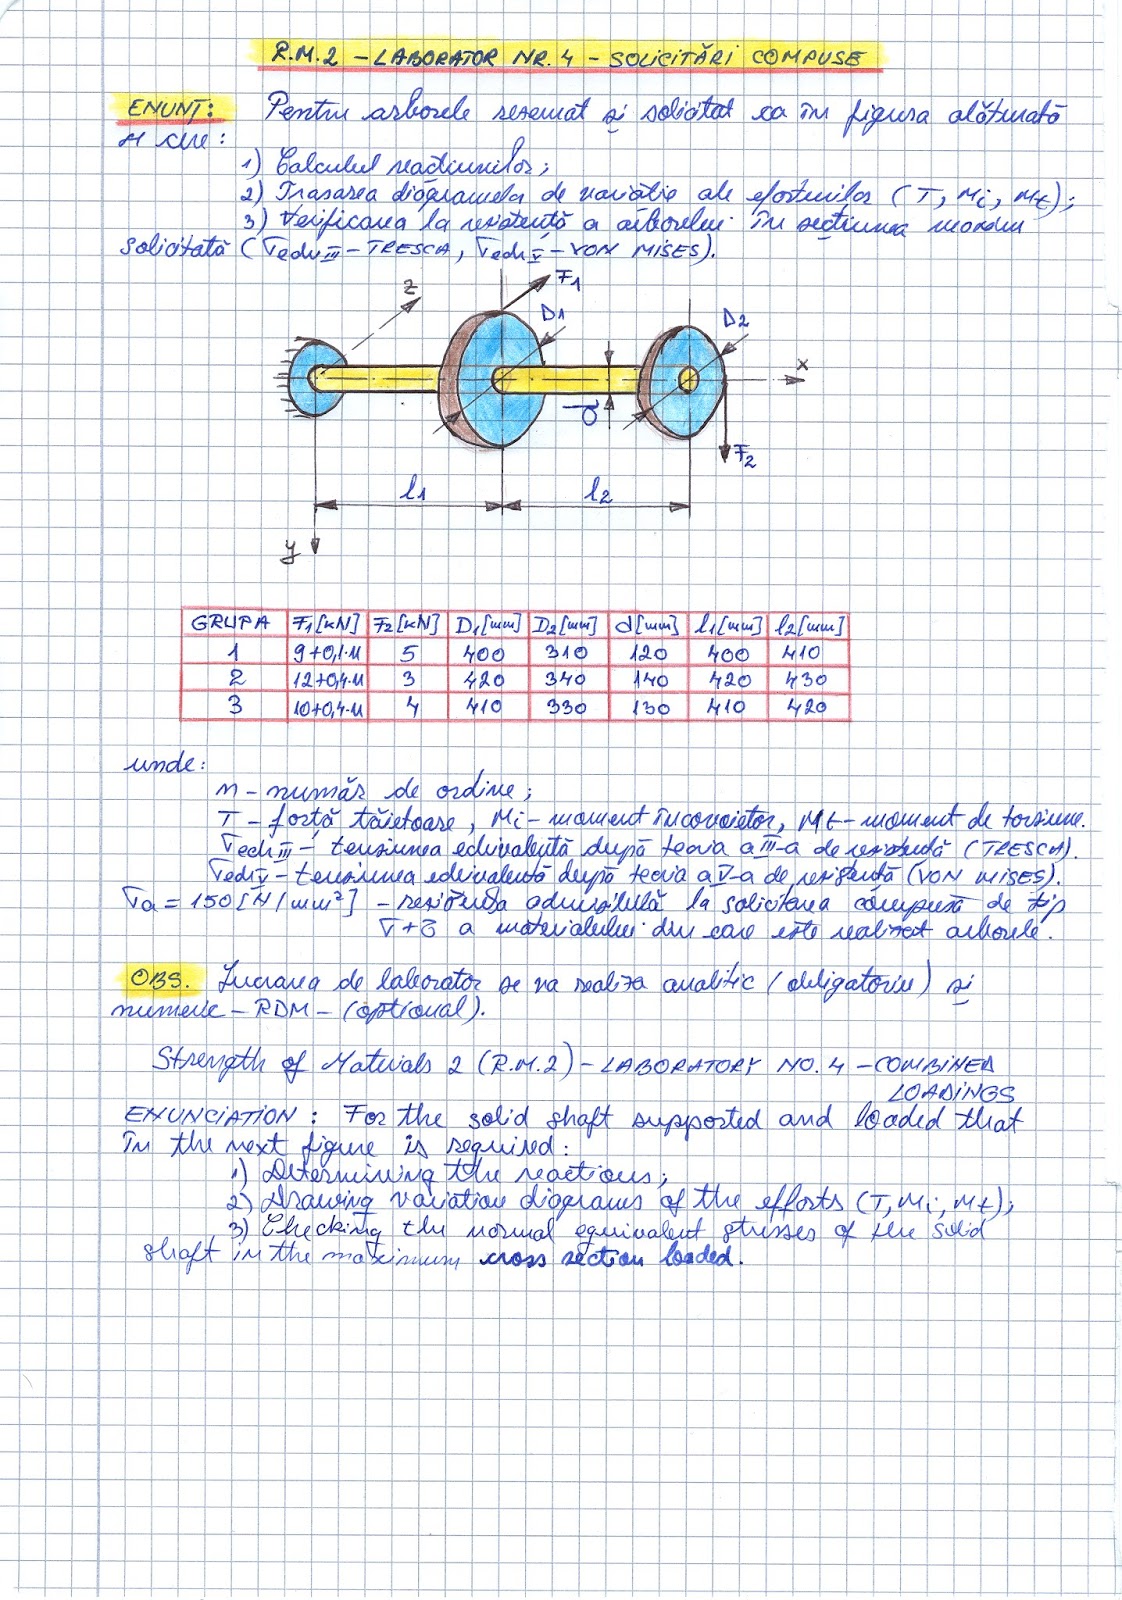 R.M.2 – LABORATOR NR. 4 – SOLICITĂRI COMPUSE
ENUNȚ: Pentru arborele rezemat și solicitat ca în figura alăturată
se cere:
1) Calculul reacțiunilor;
2) Trasarea diagramelor de variație ale eforturilor (T, Mi, Mt);
3) Verificarea la rezistență a arborelui în secțiunea maxim
solicitată (σech III – TRESCA, σech V – VON MISES).
z
F1
D1
D2
x
d
F2
l1
l2
y
GRUPA F1[kN] F2[kN] D1[mm] D2[mm] d[mm] l1[mm] l2[mm]
1 9+0,1·n 5 400 310 120 400 410
2 12+0,4·n 3 420 340 140 420 430
3 10+0,4·n 4 410 330 130 410 420
unde:
n – număr de ordine;
T – forță tăietoare, Mi – moment încovoietor, Mt – moment de torsiune.
σech III – tensiunea echivalentă după teoria a III-a de rezistență (TRESCA).
σech V – tensiunea echivalentă după teoria a V-a de rezistență (VON MISES).
σa = 150 [N/mm²] – rezistența admisibilă la solicitarea compusă de tip
σ+τ a materialului din care este realizat arborele.
OBS. Lucrarea de laborator se va realiza analitic (obligatoriu) și
numeric – RDM – (opțional).
Strength of Materials 2 (R.M.2) – LABORATORY NO. 4 – COMBINED
LOADINGS
ENUNCIATION: For the solid shaft supported and loaded that
in the next figure is required:
1) Determining the reactions;
2) Drawing variation diagrams of the efforts (T, Mi, Mt);
3) Checking the normal equivalent stresses of the solid
shaft in the maximum cross section loaded.